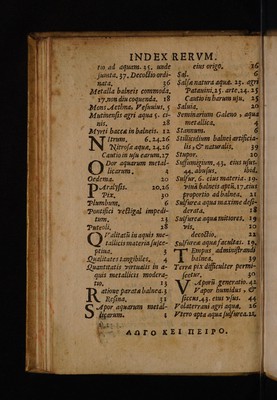 INDEX RERVM.
tio ad aquam. 25. unde
juncta. 37. Decoctio ordi-
nata. 36
Metalla balneis commoda.
17. non diu coquenda. 18
Mons Aethna. Vesuvius. 5
Mutinensis agri aqua 5. ci-
nis. 28
Myrti baccæ in balneis. 12
Nitrum. 6.24.26
Nitrosæ aquæ. 24.26
Cautio in usu earum. 27
Odor aquarum metal-
licarum.
Oedema. 20
Paralysis. 20.26
Pix. 30
Plumbum. 6
Pontifici vectigal impedi-
tum.
Puteoli. 28
Qualitatū in aquis me-
tallicis materia suscep-
ptiua. 3
Qualitates tangibiles. 4
Quantitatis virtualis in a-
quis metallicis modera-
tio. 13
Ratione parata balnea. 5
Resina. 31
Sapor aquarum metal-
licarum. 1
eius origo. 36
Sal. 6
Salsæ natura aquæ. 23. agri
Patauini. 25. arte. 24. 25
Cautio in harum usu. 25
Saluia. 20
Seminarium Galeno, aqua
metallica. 4
Stannum. 6
Stillicidium balnei artificia-
lis, & naturalis. 39
Stupor. 20
Suffumigium. 43. eius usus.
44. abusus. ibid.
Sulfur. 6. eius materia. 19.
viuū balneis aptū. 17. eius
proportio ad balnea. 21
Sulfurea aqua maxime desi-
derata. 18
Sulfurea aqua mitiores. 19
vis. 20
decoctio. 22
Sulfureæ aquæ facultas. 19.
Tempus administrandi
balnea. 39
Terra pix difficulter permi-
scetur. 30
Vaporū generatio. 42
Vapor humidus, &
siccus. 43. eius vsus. 44
Volaterrani agri aqua. 26
Vtero apta aqua sulfurea. 21.
ΛΩΓΟ ΚΕΙ ΠΕΙΡΟ.